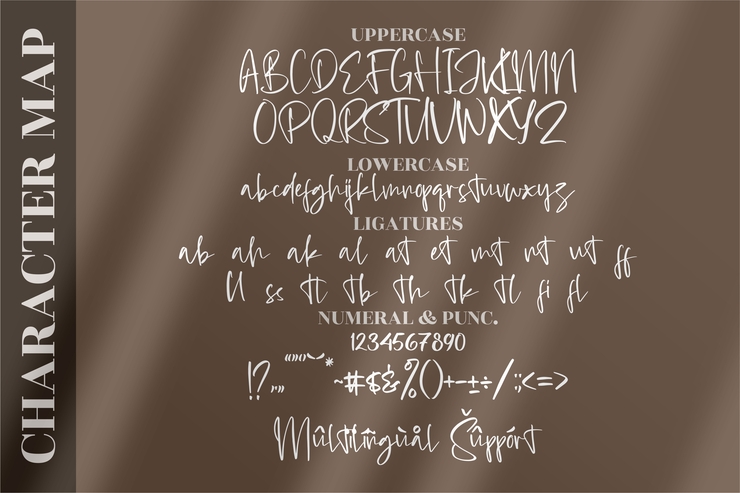 CHARACTER MAP
UPPERCASE
ABCDEFGHIJKLMN
OPQRSTUVWXYZ
LOWERCASE
abcdefghijklmnopqrstuvwxyz
LIGATURES
ab ah ak al at et mt nt ut ff
ll ss tt tb th tk tl fi fl
NUMERAL & PUNC.
1234567890
!?,,„ “”‘’~* ~#$&%()+-±÷/:;<=>
Mûltilingùàl Šûppórt